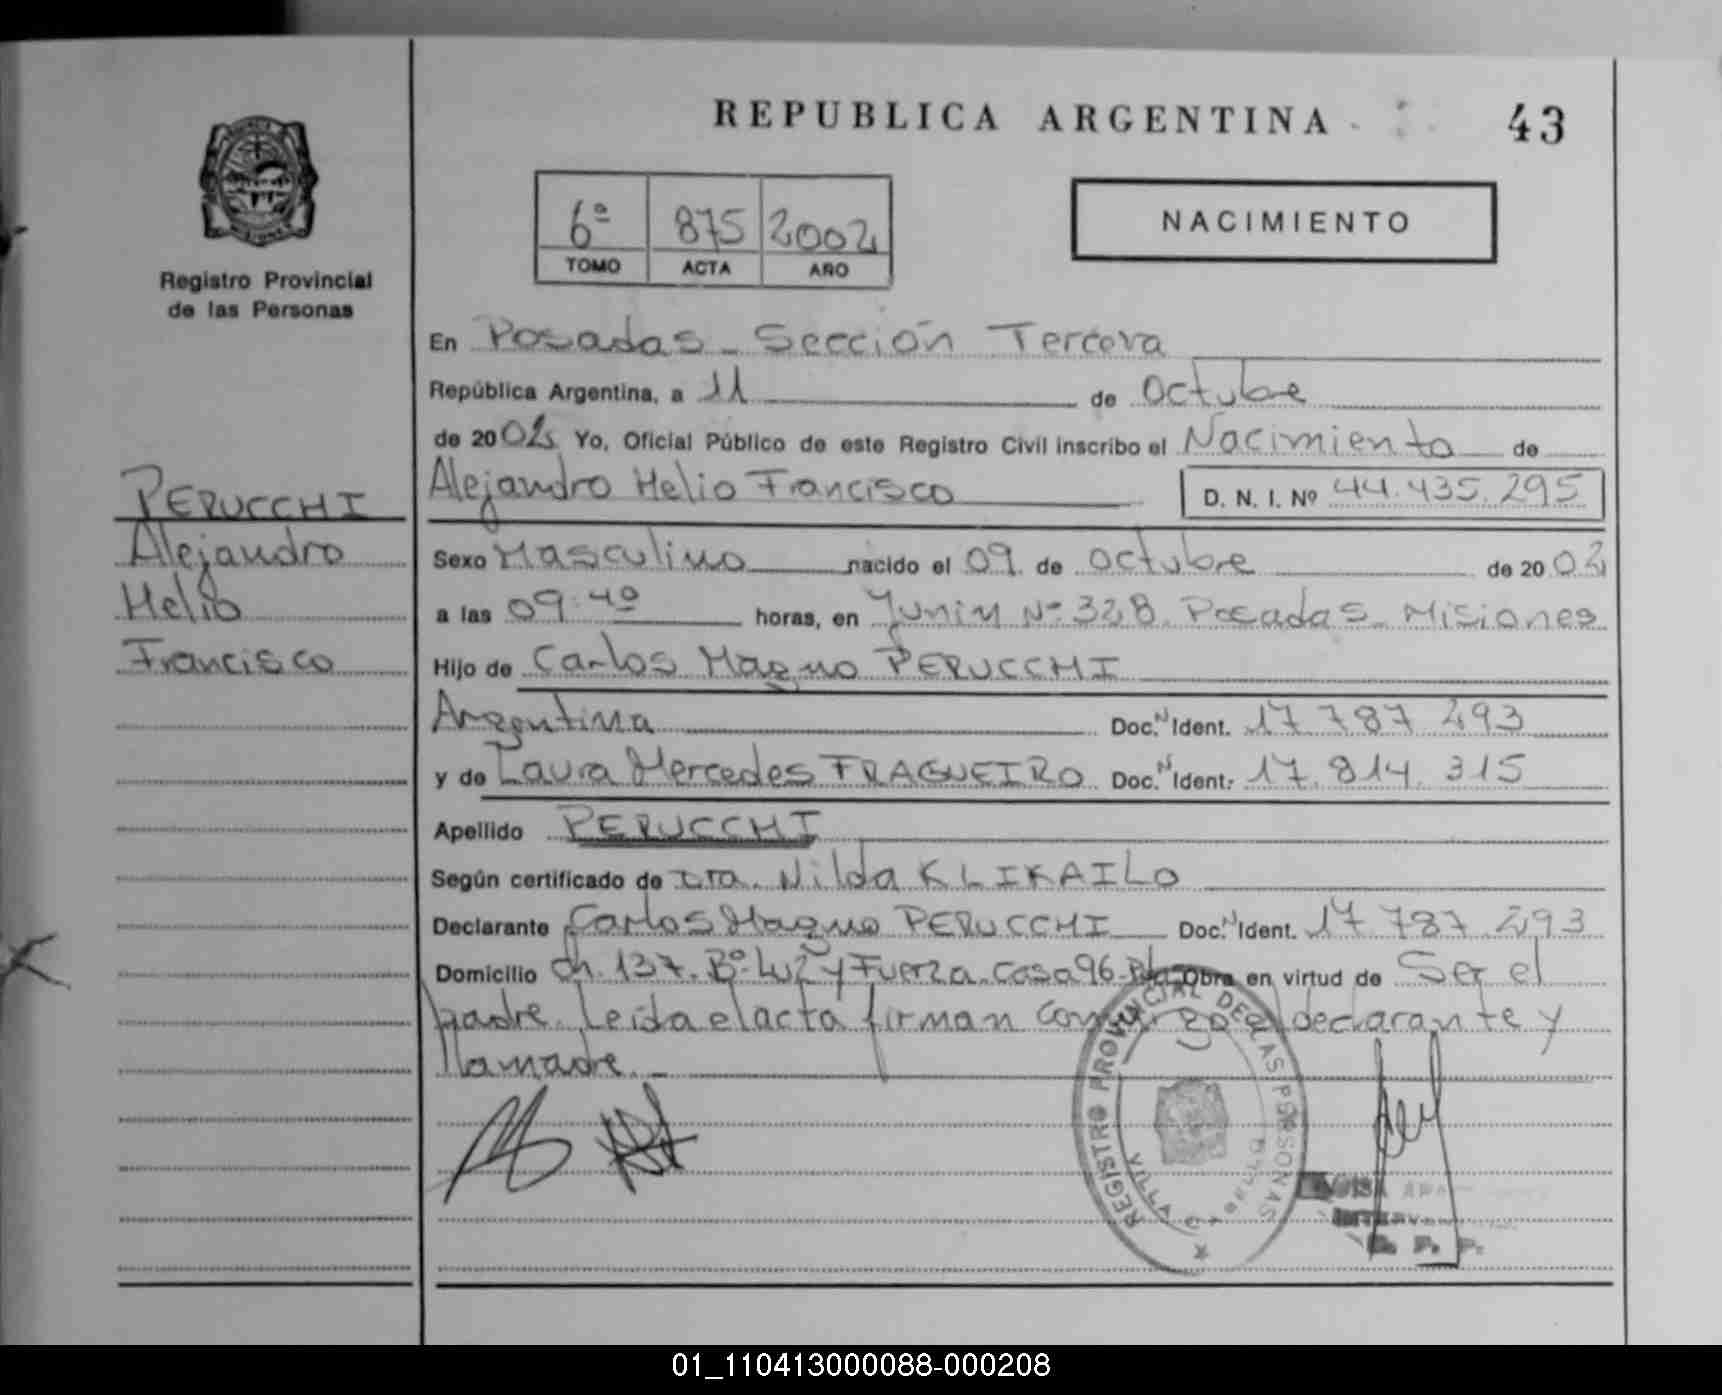 REPUBLICA ARGENTINA
43
6ª 875 2002
TOMO ACTA AÑO
NACIMIENTO
Registro Provincial
de las Personas
En Posadas - Sección Tercera
República Argentina, a 11 de Octubre
de 2002 Yo, Oficial Público de este Registro Civil inscribo el Nacimiento de
Alejandro Helio Francisco D. N. I. Nº 44.435.295
PERUCCHI
Alejandro
Helio
Francisco
Sexo Masculino nacido el 09 de Octubre de 2002
a las 09:40 horas, en Junin Nº 328 Posadas Misiones
Hijo de Carlos Magno PERUCCHI
Argentina Doc. N Ident. 17 787 293
y de Laura Mercedes FRAGUEIRO Doc. N Ident. 17.814.315
Apellido PERUCCHI
Según certificado de Dra. Nilda KLIKAILO
Declarante Carlos Magno PERUCCHI Doc. N Ident. 17 787 293
Domicilio Ch. 137. Bº Luz y Fuerza. Casa 96. Obra en virtud de Ser el
padre. Leida el acta firman conmigo el declarante y
la madre. -
REGISTRO PROVINCIAL DE LAS PERSONAS
VILLA
R. P. P.
01_110413000088-000208